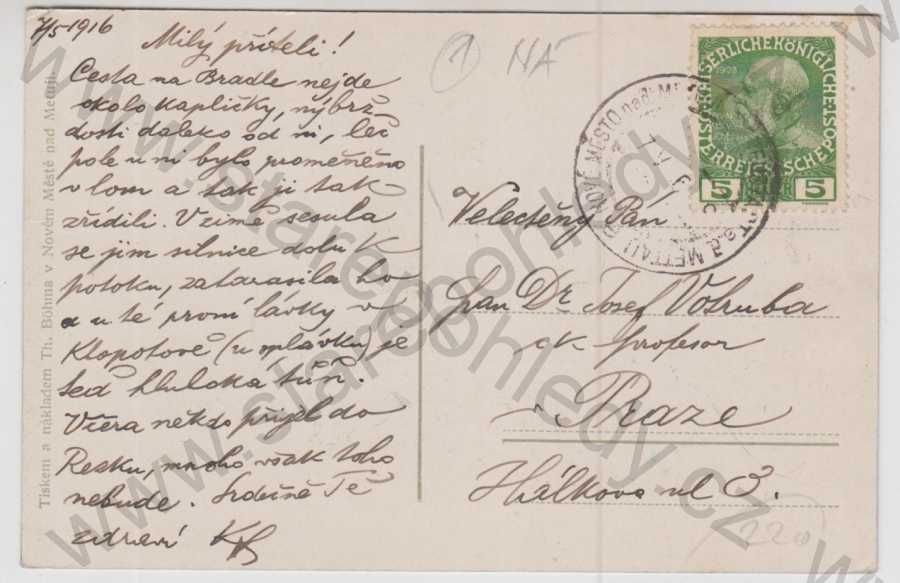 7/5 1916
Milý příteli!
Cesta na Bradle nejde
okolo kapličky, nýbrž
dosti daleko od ní, leč
pole u ní bylo proměněno
v lom a tak ji tak
zřídili. V zimě sesula
se jim silnice dolu k
potoku, zatarasila ho
a u té první lávky v
Klopotově (u splávku) je
teď hluboká tůň.
Včera někdo přijel do
Reska, mnoho však toho
nebude. Srdečně Tě
zdraví
Tiskem a nákladem Th. Böhma v Novém Městě nad Metují.
1 NÁ
NOVÉ MĚSTO nad MET
a.d. METTAU
1908
5 5
Velectěný Pan
pan Dr Josef Votruba
ck profesor
Praze
Hálkova ul 3.
220
www.staropohledy.cz